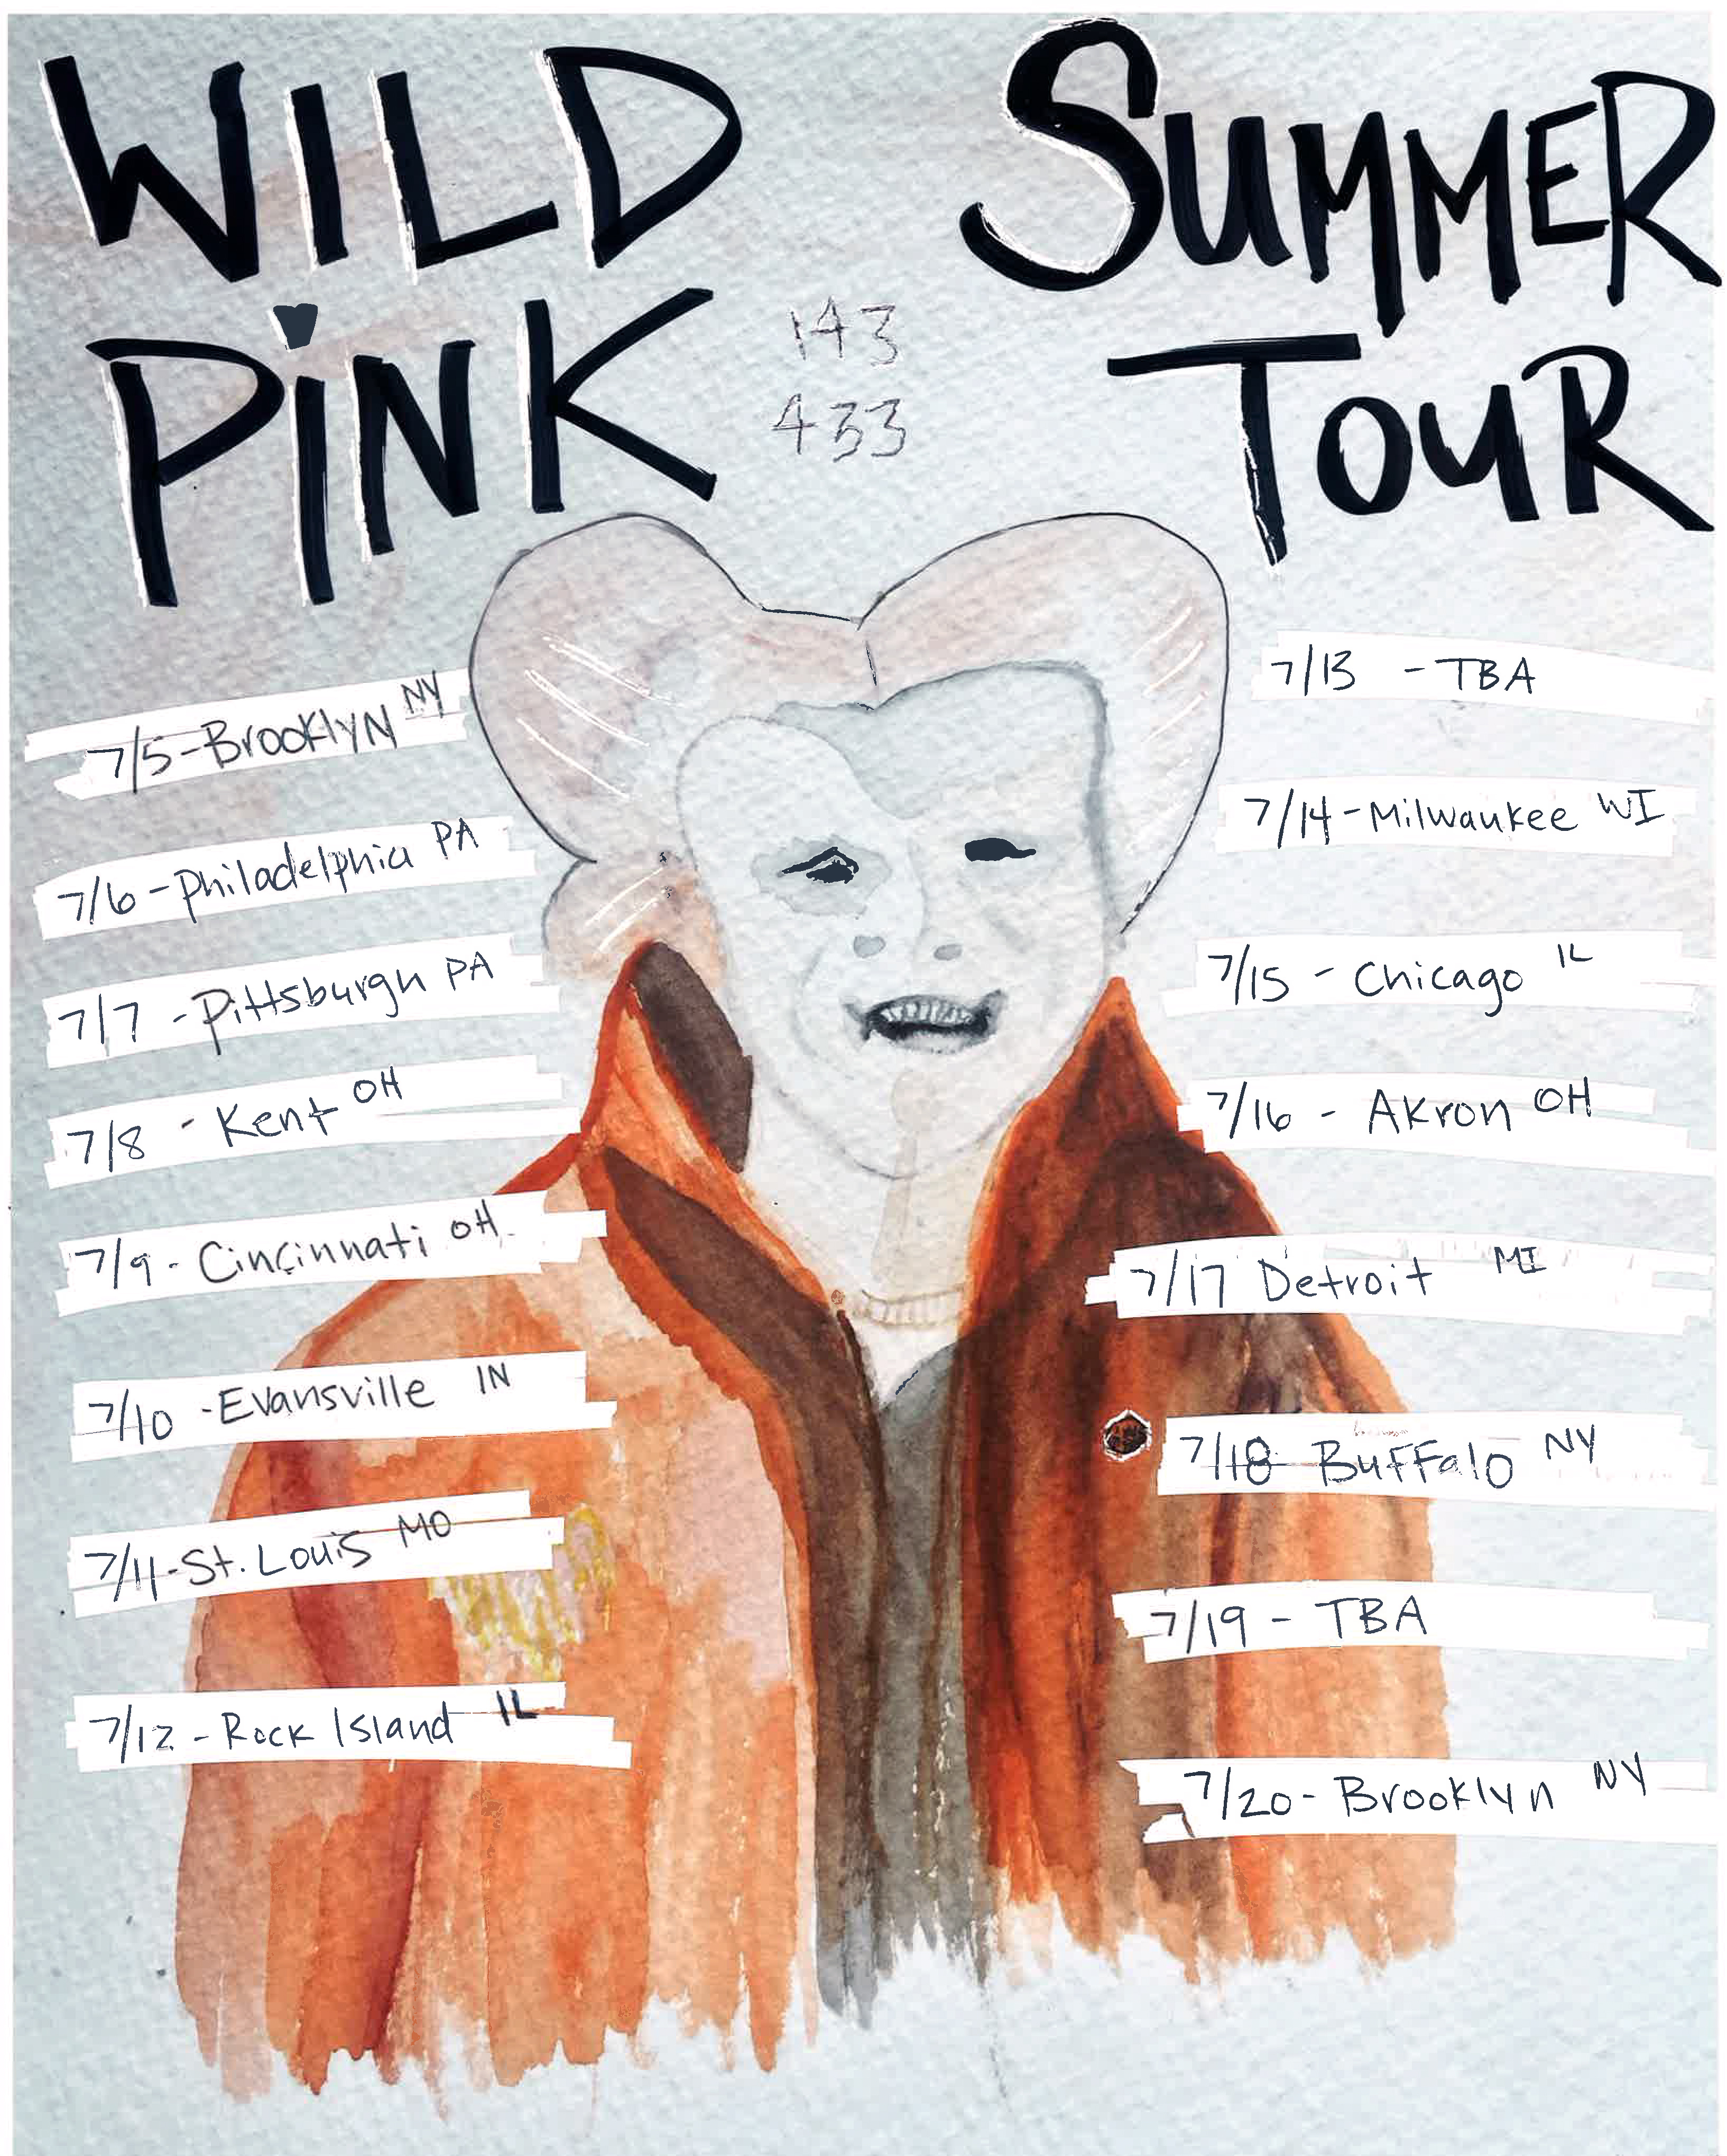 WILD
PiNK
SUMMER
TOUR
143
433
7/5-BrooklyN NY
7/6-Philadelphia PA
7/7-Pittsburgh PA
7/8-Kent OH
7/9-Cincinnati OH
7/10-Evansville IN
7/11-St. Louis MO
7/12-Rock Island IL
7/13-TBA
7/14-Milwaukee WI
7/15-Chicago IL
7/16-Akron OH
7/17 Detroit MI
7/18 Buffalo NY
7/19-TBA
7/20-Brooklyn NY